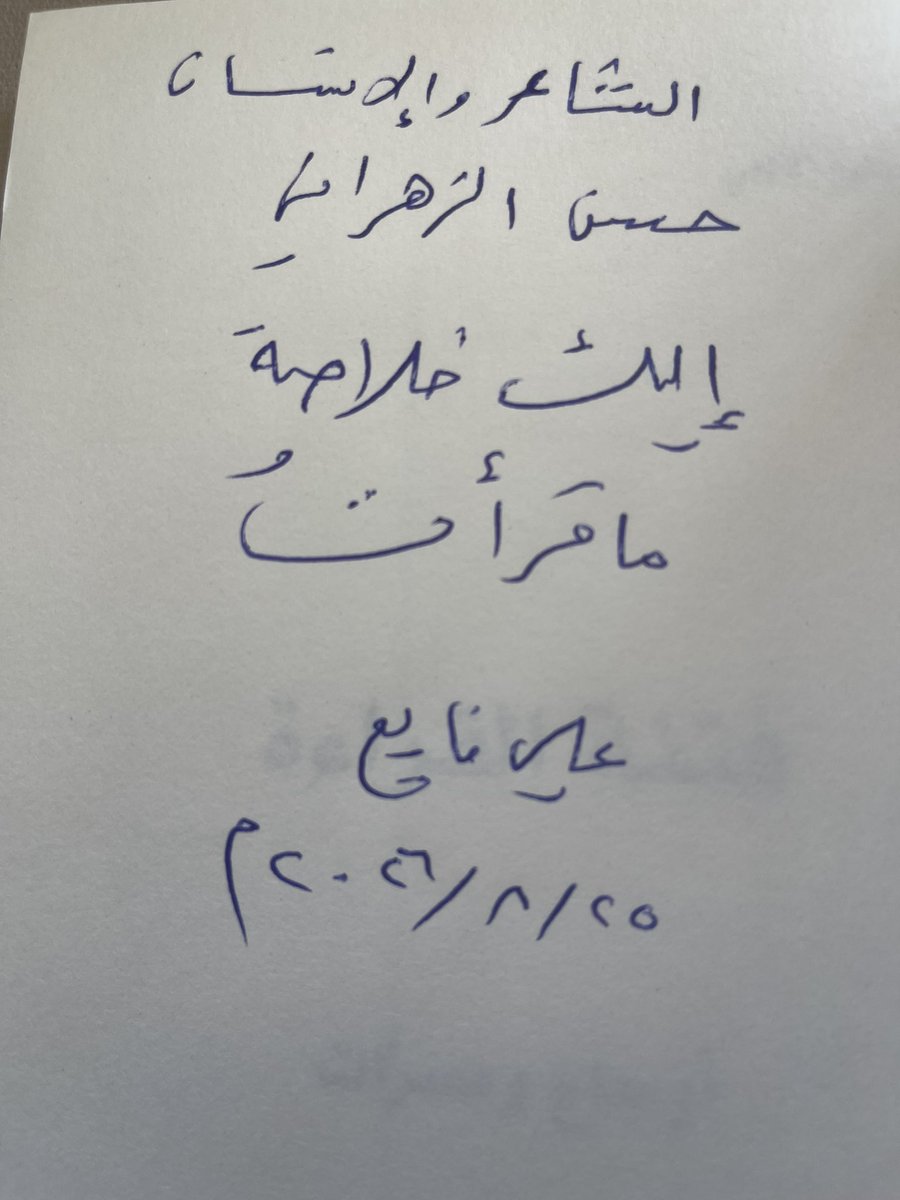 الشاعر والإنسان
حسن الزهراني
إليك خلاصة
ما قرأتُ
علي فايع
٢٥/٨/٢٠٢٦م